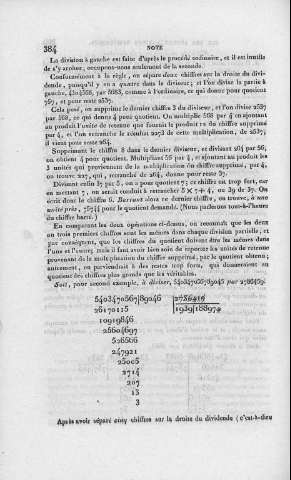 384 NOTE
La division à gauche est faite d'après le procédé ordinaire, et il est inutile
de s'y arrêter; occupons-nous seulement de la seconde.
Conformément à la règle, on sépare deux chiffres sur la droite du divi-
dende, puisqu'il y en a quatre dans le diviseur; et l'on divise la partie à
gauche, par 5683, comme à l'ordinaire, ce qui donne pour quotient
757, et pour reste 2537.
Cela posé, on supprime le dernier chiffre 3 du diviseur, et l'on divise 2537
par 568, ce qui donne 4 pour quotient. On multiplie 568 par 4 en ajoutant
au produit l'unité de retenue pour le produit du chiffre supprimé
par 4, et l'on retranche le produit 2273 de cette multiplication, de 2537;
il vient pour reste 264.
Supprimant le chiffre 8 dans le dernier diviseur, et divisant 264 par 56,
on obtient 4 pour quotient. Multipliant 56 par 4, et ajoutant au produit les
3 unités qui proviennent de la multiplication du chiffre supprimé, par 4,
on trouve 227, qui, retranché de 264, donne pour reste 37.
Divisant enfin 37 par 5, on a pour quotient 7; ce chiffre est trop fort, car
en mettant 7, on serait conduit à retrancher 5 × 7 + 4, ou 39 de 37. On
écrit donc le chiffre 6. Barrant alors ce dernier chiffre, on trouve, à une
unité près, pour le quotient demandé. (Nous parlerons tout-à-l'heure
du chiffre barré.)
En comparant les deux opérations ci-dessus, on reconnaît que les deux
ou trois premiers chiffres sont les mêmes dans chaque division partielle, et
par conséquent, que les chiffres du quotient doivent être les mêmes dans
l'une et l'autre; mais il faut avoir bien soin de reporter les unités de retenue
provenant de la multiplication du chiffre supprimé, par le quotient obtenu;
autrement, on parviendrait à des restes trop forts, qui donneraient au
quotient des chiffres plus grands que les véritables.
Soit, pour second exemple, à diviser, par
5403470567|89046
26170115
10919846
25604697
526506
247921
25005
2714
207
13
3
Après avoir séparé cinq chiffres sur la droite du dividende (c'est-à-dire